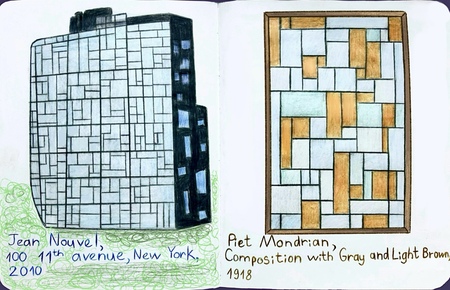 Jean Nouvel,
100 11th avenue, New York,
2010
Piet Mondrian,
Composition with Gray and Light Brown,
1918